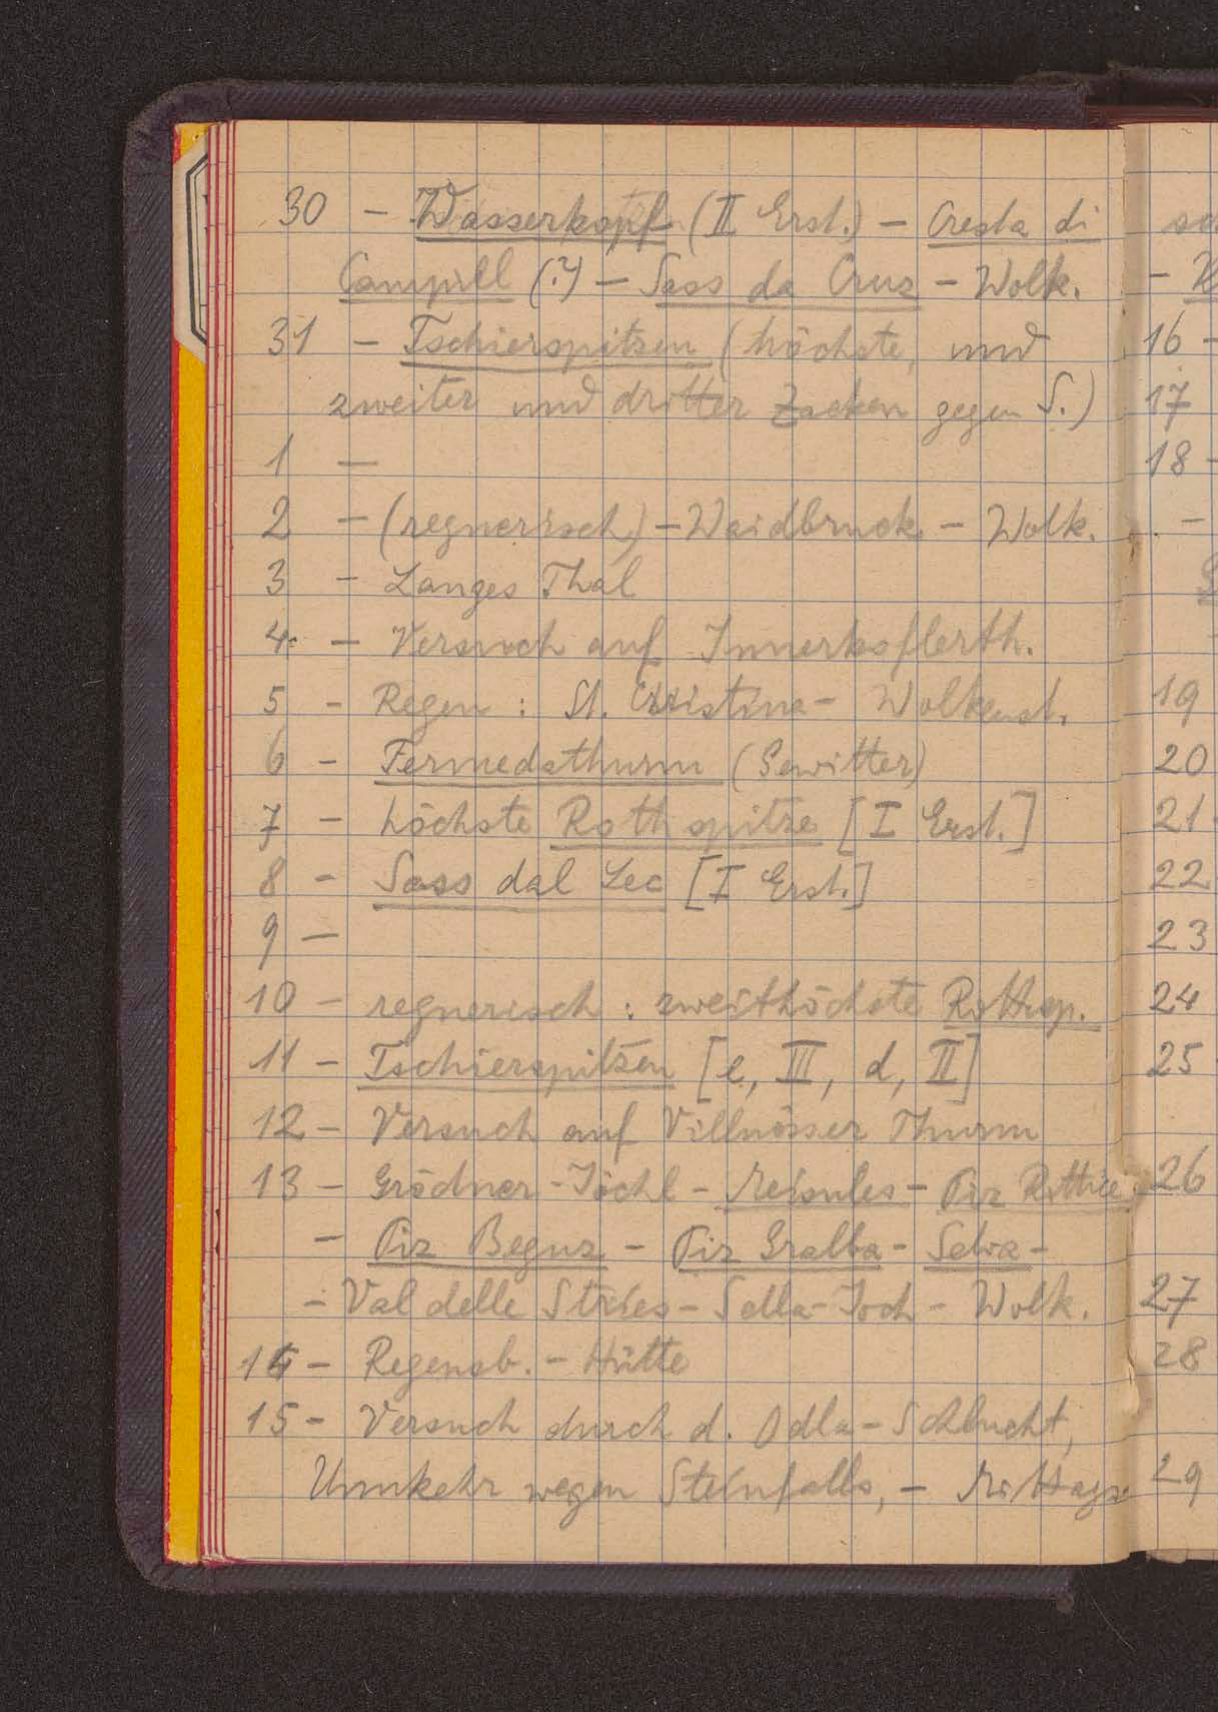 30 – Wasserkopf (II Erst.) – Cresta di
Campill (?) – Sass da Cruz – Wolk.
31 – Tschierspitzen (höchste, und
zweiter und dritter Zacken gegen S.)
1 –
2 – (regnerisch) – Waidbruck – Wolk.
3 – Langes Thal
4 – Versuch auf Innerkoflerth.
5 – Regen : St. Christina – Wolkenst.
6 – Fermedathurm (Gewitter)
7 – höchste Rothspitze [I Erst.]
8 – Sass dal Lec [I Erst.]
9 –
10 – regnerisch : zweithöchste Rothsp.
11 – Tschierspitzen [e, III, d, II]
12 – Versuch auf Villnösser Thurm
13 – Grödner-Jöchl – Meisules – Piz Rottice
– Piz Beguz – Piz Gralba – Selva –
– Val delle Stries – Sella-Joch – Wolk.
14 – Regensb. – Hütte
15 – Versuch durch d. Odla – Schlucht,
Umkehr wegen Steinfalls, – Mittags
16 –
17
18 –
–
19
20
21
22
23
24
25
26
27
28
29